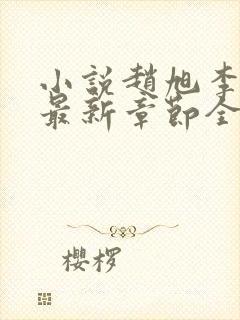 小説趙旭李
最新章節全
櫻桜